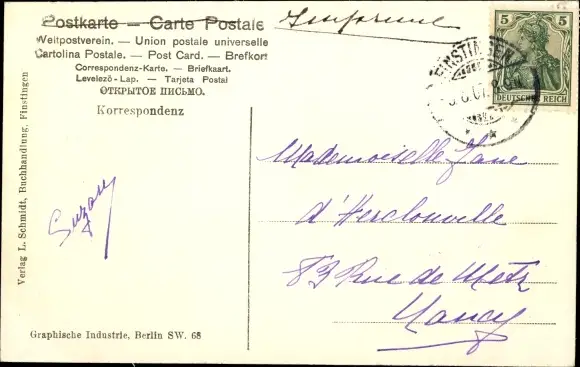 Postkarte — Carte Postale
Weltpostverein. — Union postale universelle
Cartolina Postale. — Post Card. — Brefkort
Correspondenz-Karte. — Briefkaart.
Levelező-Lap. — Tarjeta Postal
ОТКРЫТОЕ ПИСЬМО.
Korrespondenz
Imprimé
5 5
DEUTSCHES REICH
FINSTINGEN
Mademoiselle Jane
d'Hesclouville
83 Rue de Metz
Nancy
Suzan
Verlag L. Schmidt, Buchhandlung, Finstingen
Graphische Industrie, Berlin SW. 68